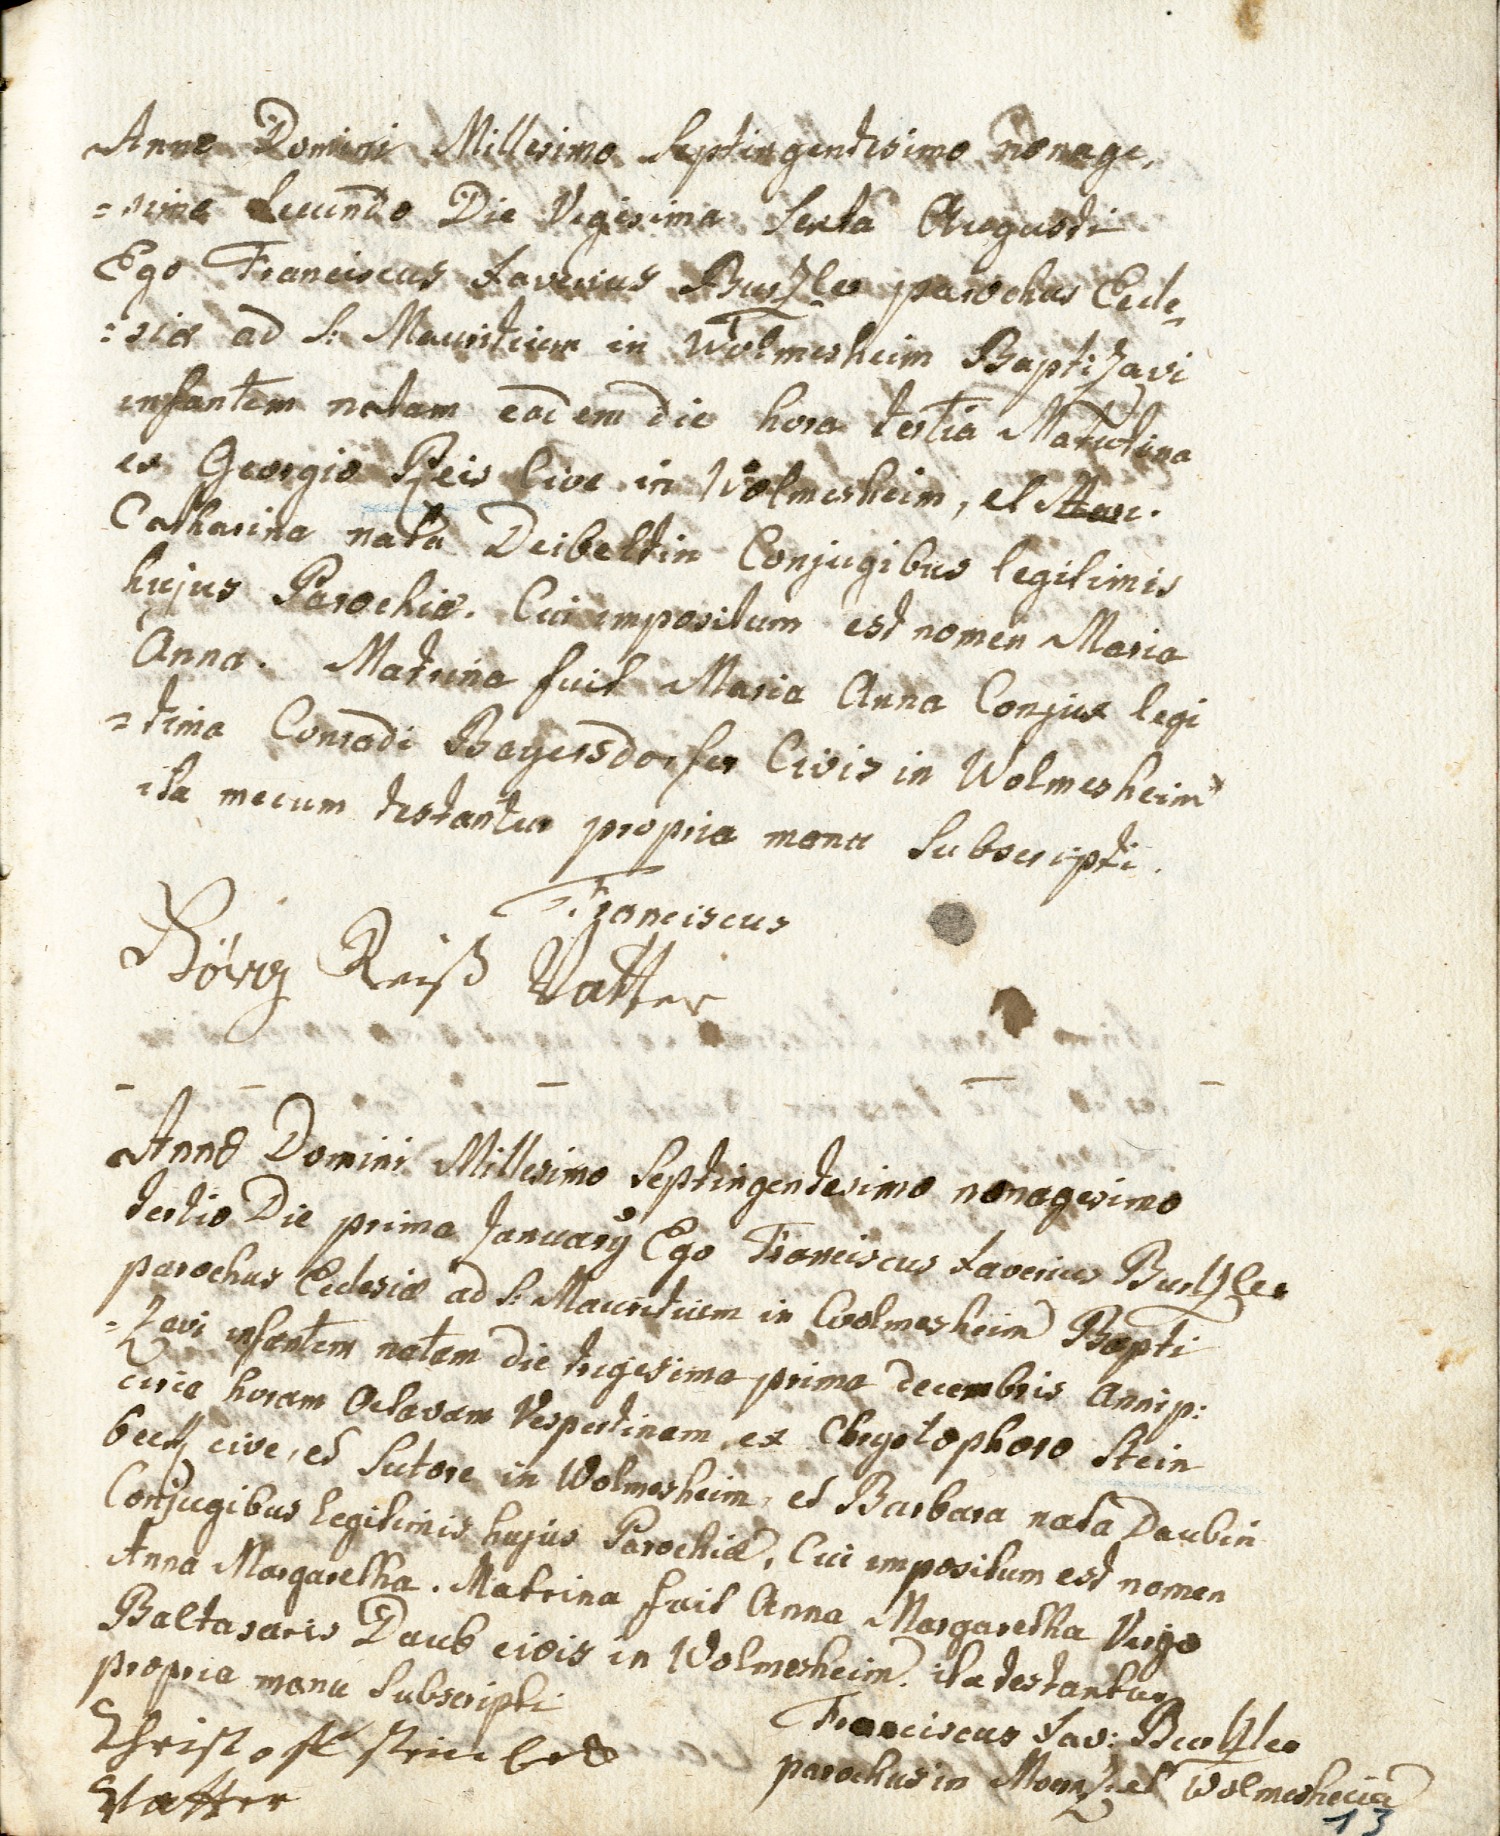 Anno Domini Millesimo Septingentesimo nonage,
=simo Secundo Die Vigesima Sexta Augusti
Ego Franciscus Xaverius Burzler parochus Eccle,
=siæ ad S: Mauritium in Wolmesheim Baptizavi
infantem natam eadem die hora tertia Matutina
ex Georgio Reis Cive in Wolmesheim, et Mar.
Catharina nata Deibeltin Conjugibus legitimis
hujus Parochiæ. Cui impositum est nomen Maria
Anna. Matrina fuit Maria Anna Conjux legi
=tima Conradi Bayersdorfer Civis in Wolmesheim
ita mecum testantur propria manu Subscripti.
Franciscus
Görg Reiß Vatter
Anno Domini Millesimo Septingentesimo nonagesimo
tertio Die prima January Ego Franciscus Xaverius Burtzler
parochus Eclesiæ ad S: Mauritium in Wolmesheim Bapti
=zavi infantem natam die trigesima prima decembris Anni p:
circa horam Octavam Vespertinam, ex Chrystophoro Stein
beck cive, et Sutore in Wolmesheim, et Barbara nata Daubin
Conjugibus legitimis hujus Parochiæ, Cui impositum est nomen
Anna Margaretha. Matrina fuit Anna Margaretha Virgo
Baltasaris Daub civis in Wolmesheim. ita testantur
propria manu Subscripti
Franciscus Xav: Burtzler
Christoff
parochus in Mörz: et Wolmesheim
Vatter
13